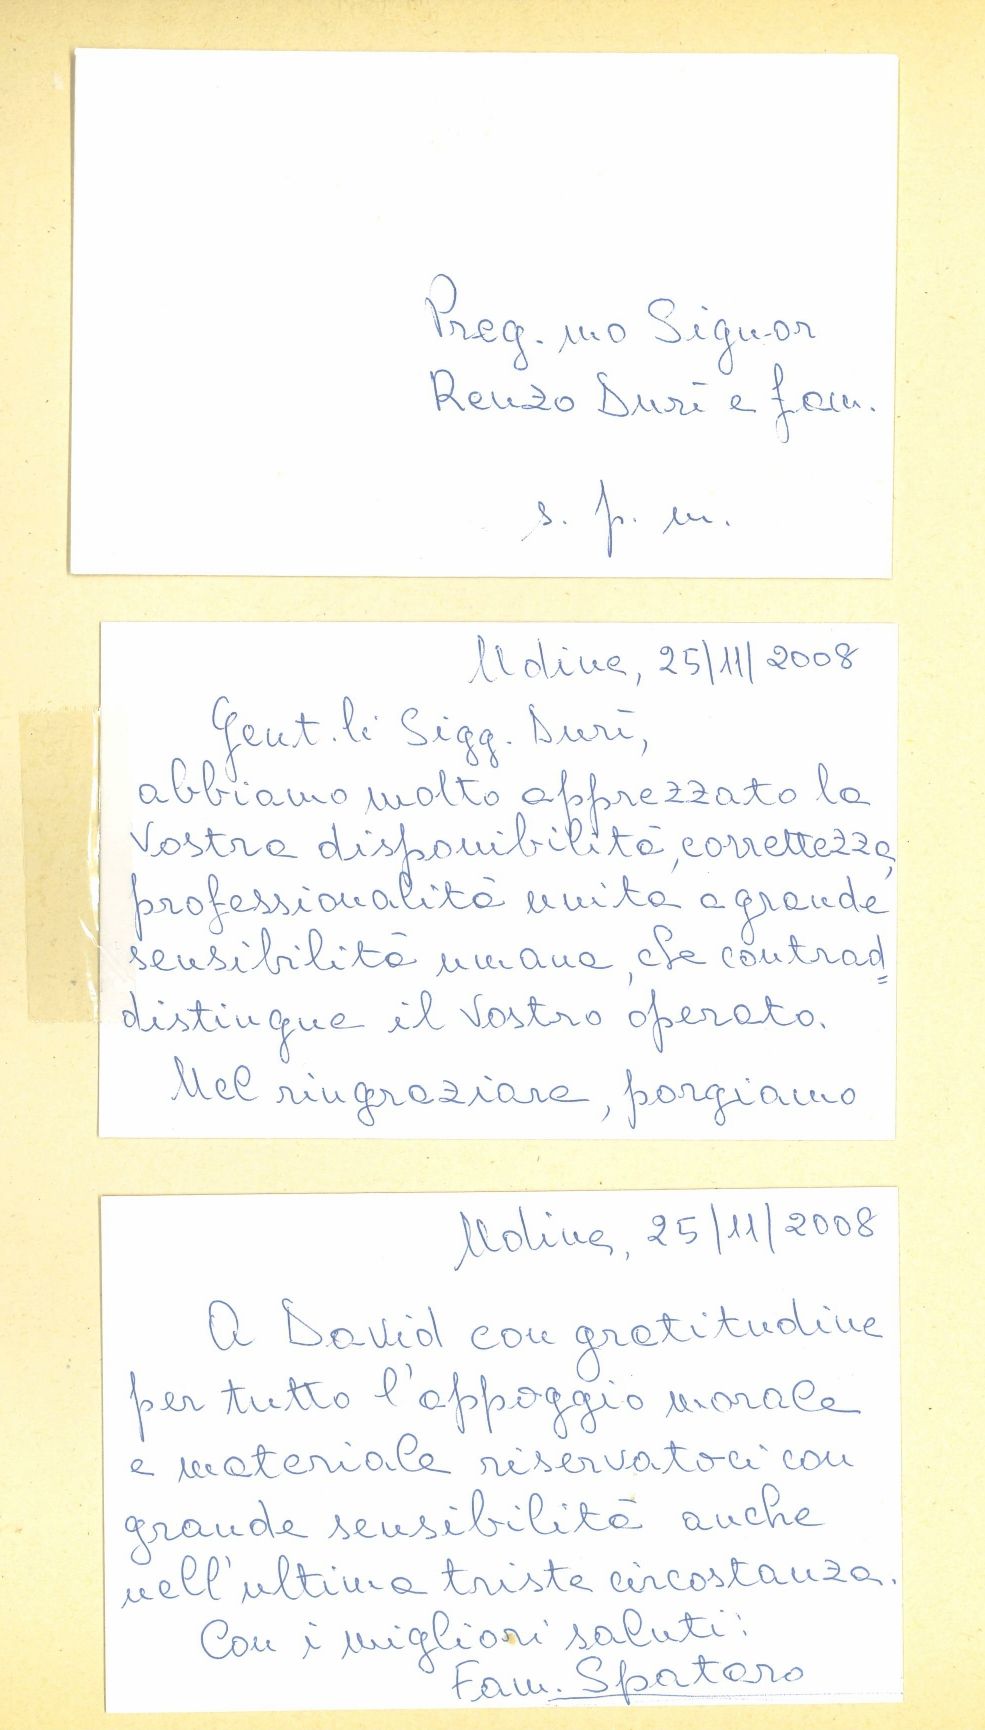 Preg.mo Signor
Renzo Durì e fam.
s. p. m.
Udine, 25/11/2008
Gent.li Sigg. Durì,
abbiamo molto apprezzato la
Vostra disponibilità, correttezza,
professionalità unita a grande
sensibilità umana, che contrad=
distingue il Vostro operato.
Nel ringraziare, porgiamo
Udine, 25/11/2008
A David con gratitudine
per tutto l'appoggio morale
e materiale riservatoci con
grande sensibilità anche
nell'ultima triste circostanza.
Con i migliori saluti:
Fam. Spataro